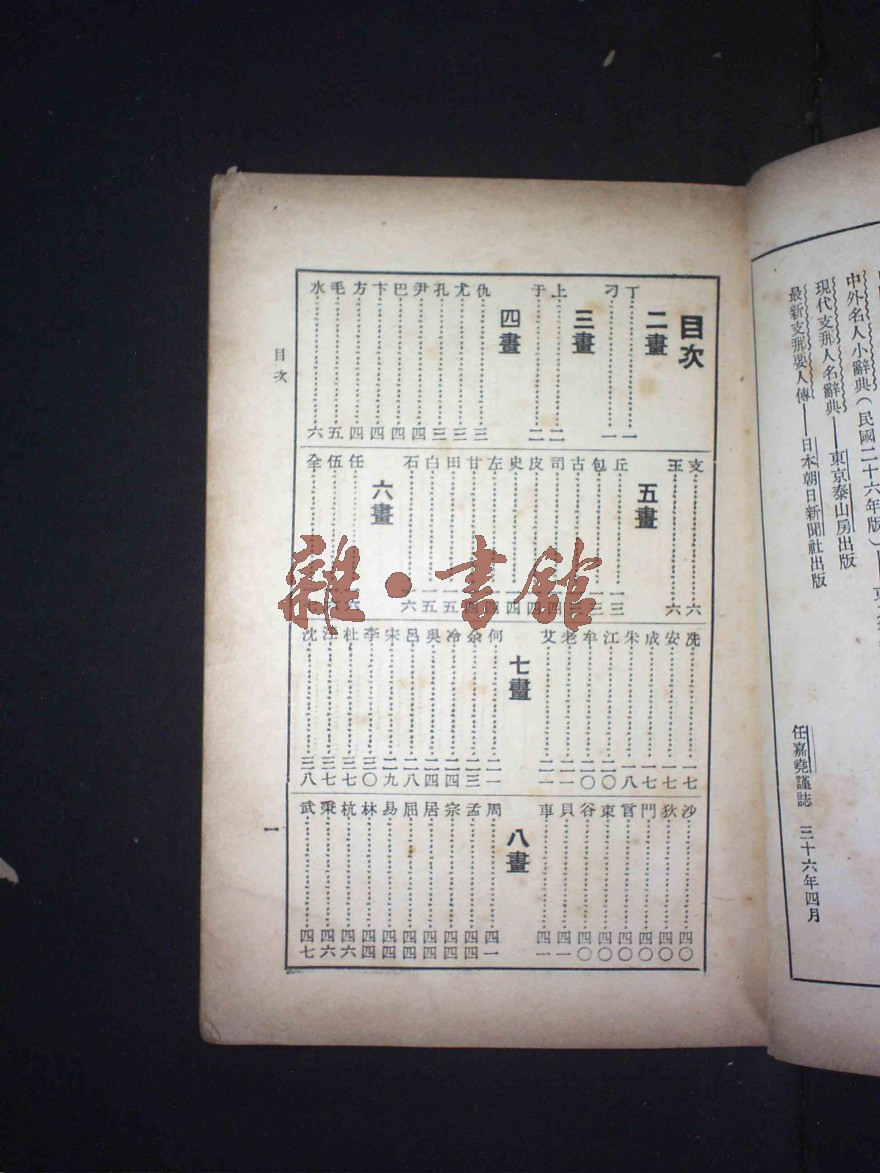 中外名人小辭典（民國二十六年版）——
現代支那人名辭典——東京泰山房出版
最新支那要人傳——日本朝日新聞社出版
任嘉堯謹誌　三十六年四月
目次
二畫
丁……一
刁……一
三畫
上……二
于……二
四畫
仇……三
尤……三
孔……三
尹……四
巴……四
卞……四
方……四
毛……五
水……六
支……六
王……六
五畫
丘……一三
包……一三
古
司
皮
史……一四
左
甘
田……一五
白……一五
石……一六
六畫
任
伍
全
冼……一七
安……一七
成……一七
朱……一八
江……二〇
牟……二〇
老……二一
艾……二一
七畫
何……二一
余……二三
冷……二四
吳……二四
呂……二八
宋……二九
李……三〇
杜……三七
汪……三七
沈……三八
沙……四〇
狄……四〇
門……四〇
言……四〇
束……四〇
谷……四〇
貝……四一
車……四一
八畫
周……四一
孟……四四
宗……四四
居……四四
屈……四四
易……四四
林……四四
杭……四六
秉……四六
武……四七
目次
一
雜·書館